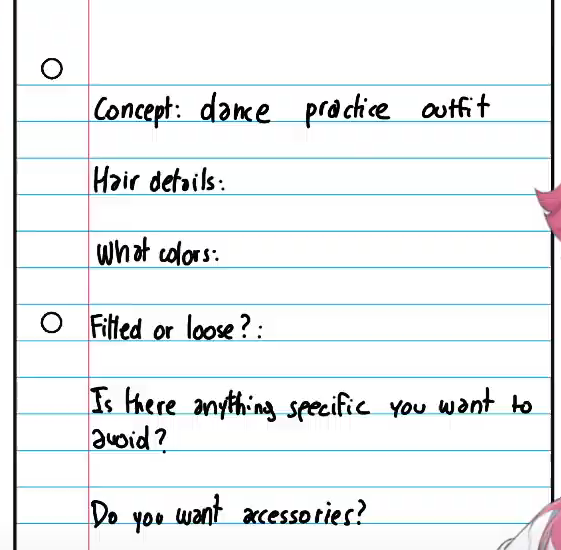 Concept: dance practice outfit
Hair details:
What colors:
Fitted or loose?:
Is there anything specific you want to
avoid?
Do you want accessories?